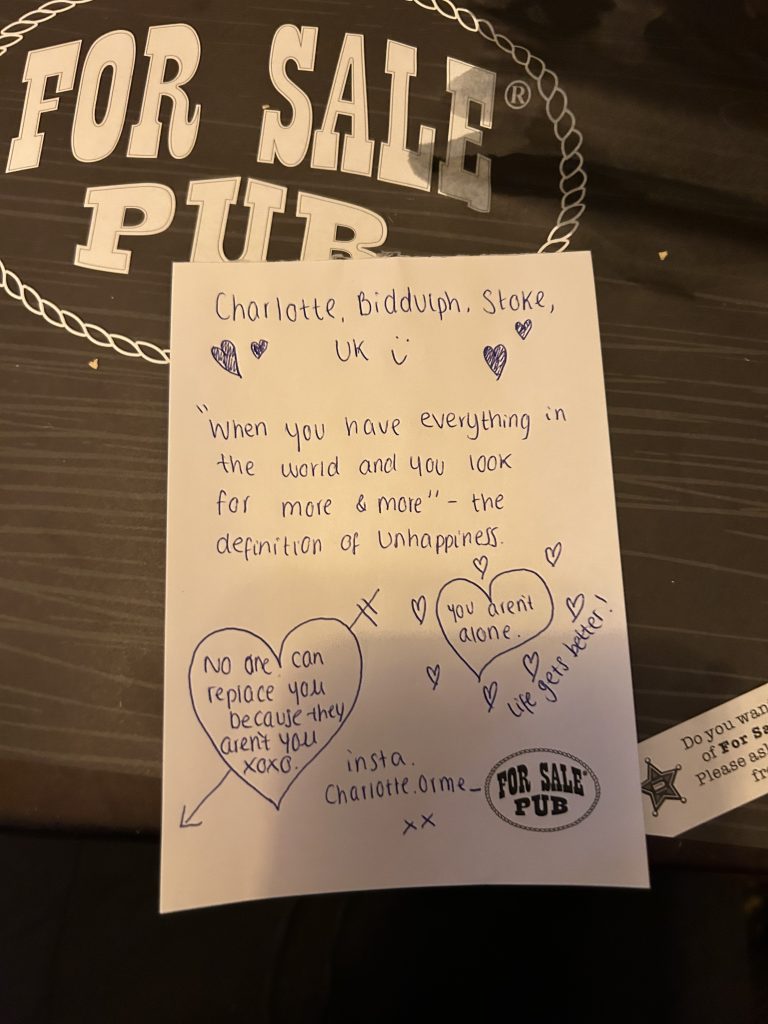 FOR SALE®
PUB
Charlotte, Biddulph, Stoke,
UK
"When you have everything in
the world and you look
for more & more" - the
definition of Unhappiness.
You aren't
alone.
life gets better!
No one can
replace you
because they
aren't you
xoxo.
insta.
Charlotte.Orme_
xx
FOR SALE®
PUB
Do you wan
of For Sa
Please as
fr